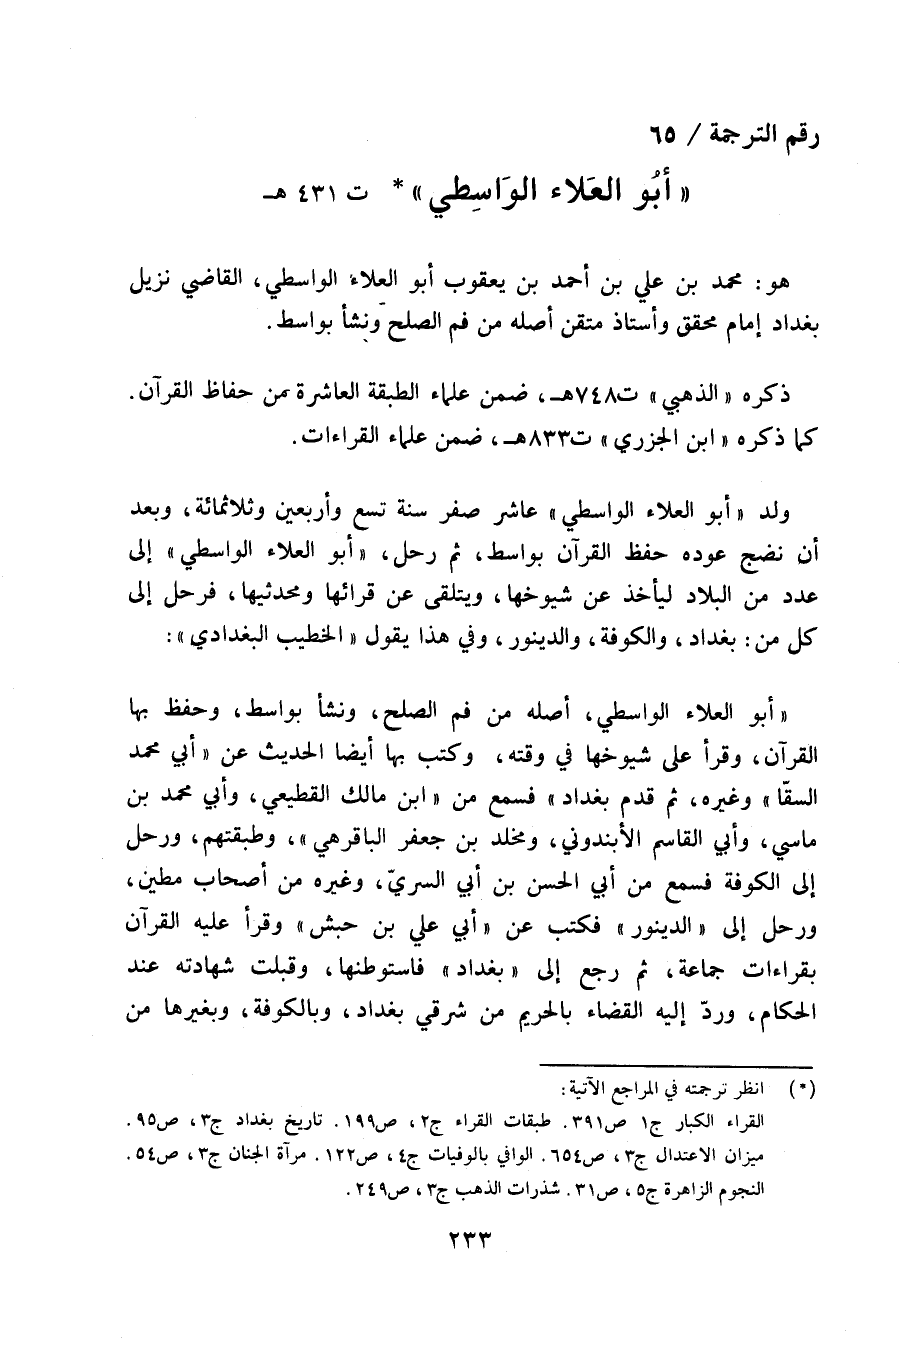 رقم الترجمة / ٦٥
« أبُو العَلاء الوَاسِطي » * ت ٤٣١ هـ
هو : محمد بن علي بن أحمد بن يعقوب أبو العلاء الواسطي ، القاضي نزيل
بغداد إمام محقق وأستاذ متقن أصله من فم الصلح ونشأ بواسط .
ذكره « الذهبي » ت٧٤٨هـ ، ضمن علماء الطبقة العاشرة من حفاظ القرآن .
كما ذكره « ابن الجزري » ت٨٣٣هـ ، ضمن علماء القراءات .
ولد « أبو العلاء الواسطي » عاشر صفر سنة تسع وأربعين وثلاثمائة ، وبعد
أن نضج عوده حفظ القرآن بواسط ، ثم رحل ، « أبو العلاء الواسطي » إلى
عدد من البلاد ليأخذ عن شيوخها ، ويتلقى عن قرائها ومحدثيها ، فرحل إلى
كل من : بغداد ، والكوفة ، والدينور ، وفي هذا يقول « الخطيب البغدادي » :
« أبو العلاء الواسطي ، أصله من فم الصلح ، ونشأ بواسط ، وحفظ بها
القرآن ، وقرأ على شيوخها في وقته ، وكتب بها أيضا الحديث عن « أبي محمد
السقّا » وغيره ، ثم قدم بغداد » فسمع من « ابن مالك القطيعي ، وأبي محمد بن
ماسي ، وأبي القاسم الأبندوني ، ومخلد بن جعفر الباقرهي » ، وطبقتهم ، ورحل
إلى الكوفة فسمع من أبي الحسن بن أبي السريّ ، وغيره من أصحاب مطين ،
ورحل إلى « الدينور » فكتب عن « أبي علي بن حبش » وقرأ عليه القرآن
بقراءات جماعة ، ثم رجع إلى « بغداد » فاستوطنها ، وقبلت شهادته عند
الحكام ، وردّ إليه القضاء بالحريم من شرقي بغداد ، وبالكوفة ، وبغيرها من
(*) انظر ترجمته في المراجع الآتية :
القراء الكبار ج١ ص٣٩١ . طبقات القراء ج٢ ، ص١٩٩ . تاريخ بغداد ج٣ ، ص٩٥ .
ميزان الاعتدال ج٣ ، ص٦٥٤ . الوافي بالوفيات ج٤ ، ص١٢٢ . مرآة الجنان ج٣ ، ص٥٤ .
النجوم الزاهرة ج٥ ، ص٣١ . شذرات الذهب ج٣ ، ص٢٤٩ .
٢٣٣